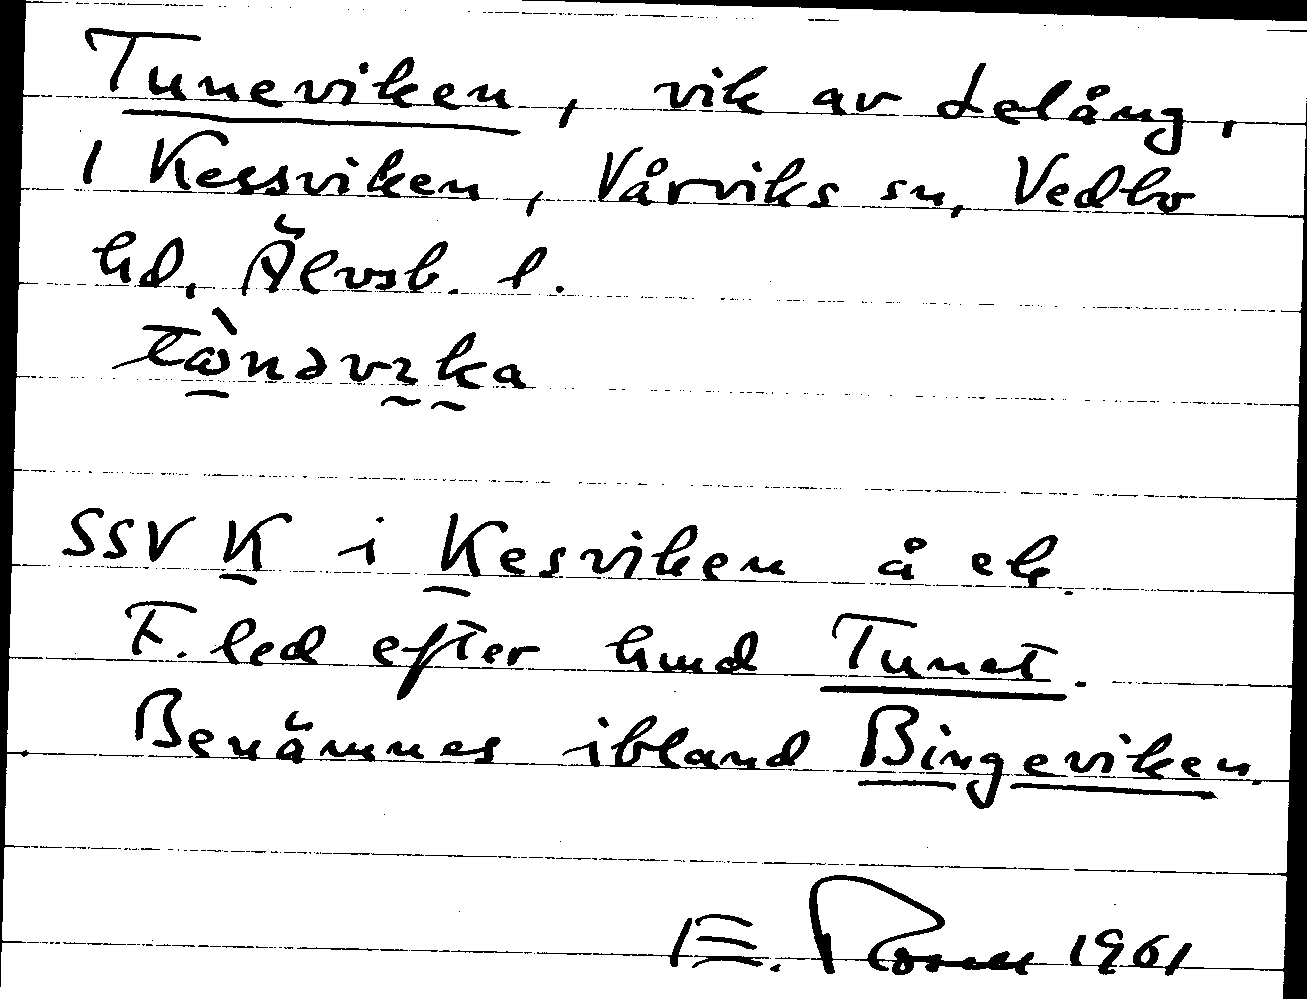 Tuneviken, vik av Lelång,
1 Kessviken, Vårviks sn, Vedbo
hd, Älvsb. l.
SSV K i Kesviken å ek.
F. led efter hmd Tunet.
Benämnes ibland Bingeviken.
E. 1961